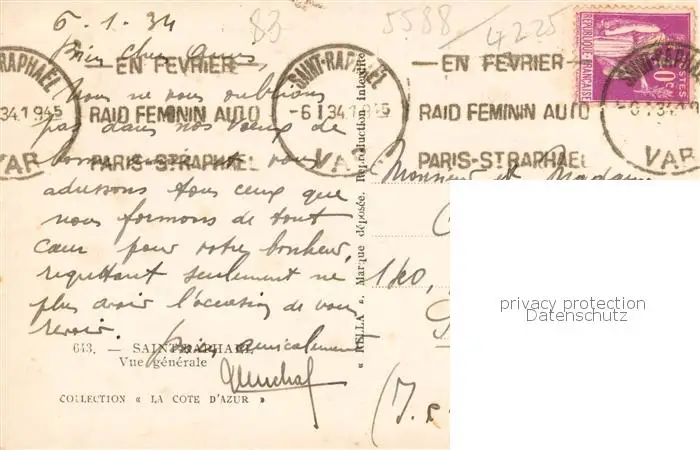 6.1.34
83
5588
4225
Bien chers amis,
Nous ne vous oublions
pas dans nos vœux de
bonne année et vous
adressons tous ceux que
nous formons de tout
cœur pour votre bonheur,
regrettant seulement ne
plus avoir l'occasion de vous
revoir.
Bien amicalement
SAINT-RAPHAEL
-6 I 34.1 945
VAR
— EN FEVRIER —
RAID FEMININ AUTO
PARIS-ST.RAPHAEL
SAINT-RAPHAEL
-6 I 34.1 945
VAR
— EN FEVRIER —
RAID FEMININ AUTO
PARIS-ST.RAPHAEL
SAINT-RAPHAEL
-6 I 34.1
VAR
REPUBLIQUE FRANÇAISE
POSTES
Monsieur et Madame
180,
(I.
« RELLA ». Marque déposée. Reproduction interdite.
643. — SAINT-RAPHAEL
Vue générale
COLLECTION « LA COTE D'AZUR »
privacy protection
Datenschutz